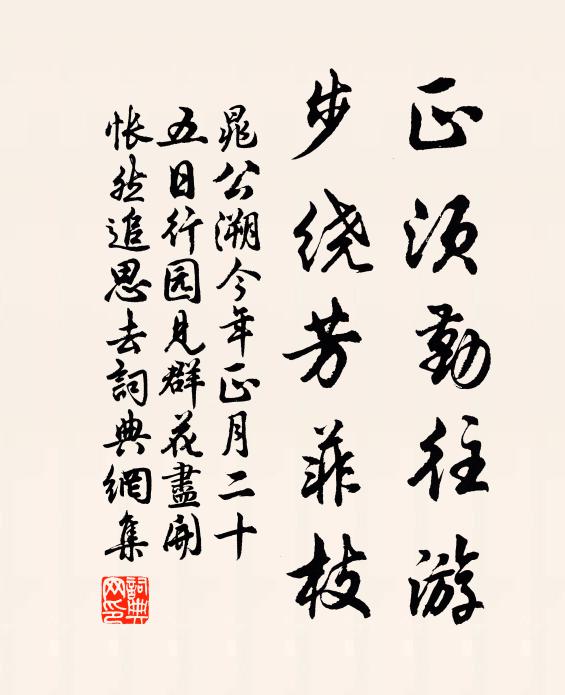 正须勤往游
步绕芳菲枝
晁公溯今年正月二十
五日行园见群花盡開
怅然追思去詞典網集
詞典
网印